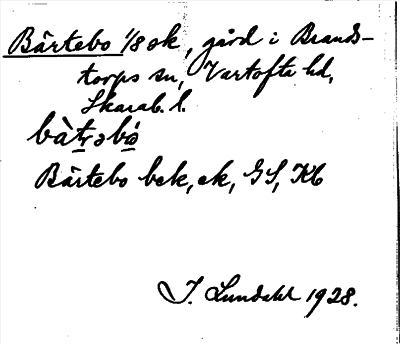 Bårtebo 1/8 sk, gård i Brands-
torps sn, Vartofta hd,
Skarab. l.
bà
Bårtebo bek, ek, GS, Kb
I. Lundahl 1928.